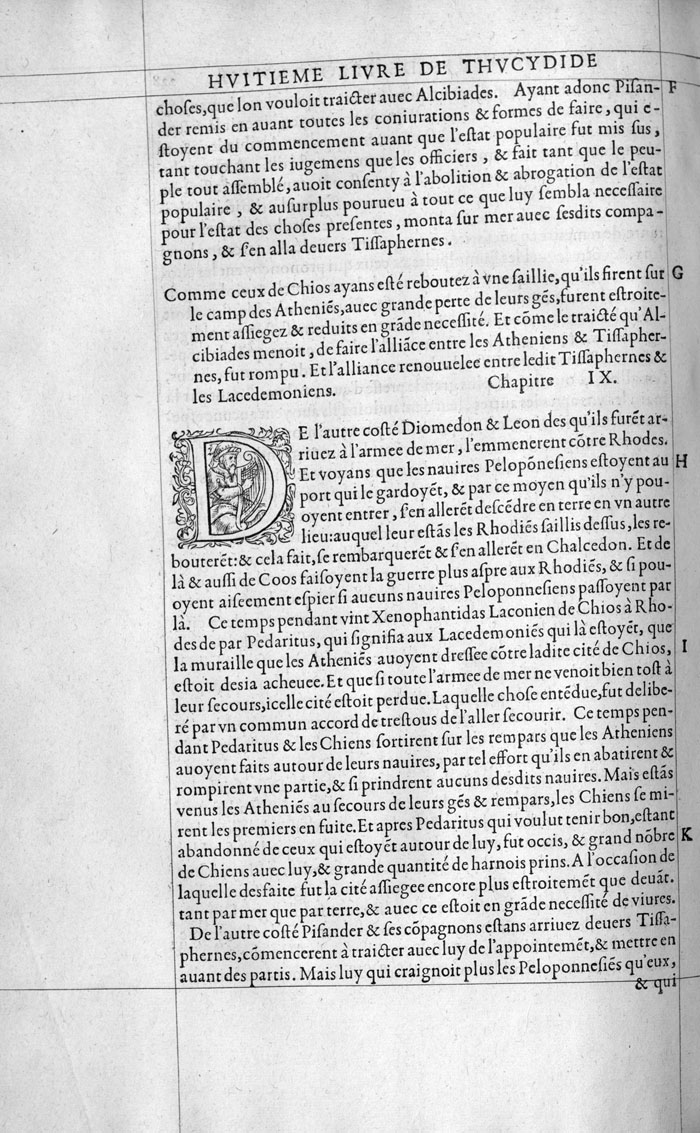 HVITIEME LIVRE DE THVCYDIDE
choſes,que lon vouloit traicter auec Alcibiades. Ayant adonc Piſan- F
der remis en auant toutes les coniurations & formes de faire, qui e-
ſtoyent du commencement auant que l'eſtat populaire fut mis ſus,
tant touchant les iugemens que les officiers, & fait tant que le peu-
ple tout aſſemblé, auoit conſenty à l'abolition & abrogation de l'eſtat
populaire, & auſurplus pourueu à tout ce que luy ſembla neceſſaire
pour l'eſtat des choſes preſentes, monta ſur mer auec ſeſdits compa-
gnons, & ſ'en alla deuers Tiſſaphernes.
Comme ceux de Chios ayans eſté reboutez à vne ſaillie,qu'ils firent ſur G
le camp des Atheniés,auec grande perte de leurs gẽs,furent eſtroite-
ment aſſiegez & reduits en grãde neceſſité. Et cõme le traicté qu'Al-
cibiades menoit, de faire l'alliãce entre les Atheniens & Tiſſapher-
nes, fut rompu. Et l'alliance renouuelee entre ledit Tiſſaphernes &
les Lacedemoniens. Chapitre IX.
DE l'autre coſté Diomedon & Leon des qu'ils furẽt ar-
riuez à l'armee de mer, l'emmenerent cõtre Rhodes.
Et voyans que les nauires Pelopõneſiens eſtoyent au H
port qui le gardoyẽt, & par ce moyen qu'ils n'y pou-
oyent entrer, ſ'en allerẽt deſcẽdre en terre en vn autre
lieu:auquel leur eſtãs les Rhodiés ſaillis deſſus, les re-
bouterẽt:& cela fait,ſe rembarquerẽt & ſ'en allerẽt en Chalcedon. Et de
là & auſſi de Coos faiſoyent la guerre plus aſpre aux Rhodiés, & ſi pou-
oyent aiſeement eſpier ſi aucuns nauires Peloponneſiens paſſoyent par
là. Ce temps pendant vint Xenophantidas Laconien de Chios à Rho-
des de par Pedaritus, qui ſignifia aux Lacedemoniés qui là eſtoyẽt, que
la muraille que les Atheniés auoyent dreſſee cõtre ladite cité de Chios, I
eſtoit desia acheuee. Et que ſi toute l'armee de mer ne venoit bien toſt à
leur ſecours,icelle cité eſtoit perdue. Laquelle choſe entẽdue,fut delibe-
ré par vn commun accord de treſtous de l'aller ſecourir. Ce temps pen-
dant Pedaritus & les Chiens ſortirent ſur les rempars que les Atheniens
auoyent faits autour de leurs nauires, par tel effort qu'ils en abatirent &
rompirent vne partie,& ſi prindrent aucuns deſdits nauires. Mais eſtãs
venus les Atheniés au ſecours de leurs gẽs & rempars,les Chiens ſe mi-
rent les premiers en fuite. Et apres Pedaritus qui voulut tenir bon,eſtant
abandonné de ceux qui eſtoyẽt autour de luy, fut occis, & grand nõbre K
de Chiens auec luy,& grande quantité de harnois prins. A l'occaſion de
laquelle desfaite fut la cité aſſiegee encore plus eſtroitemẽt que deuãt.
tant par mer que par terre,& auec ce eſtoit en grãde neceſſité de viures.
De l'autre coſté Piſander & ſes cõpagnons eſtans arriuez deuers Tiſſa-
phernes,cõmencerent à traicter auec luy de l'appointemẽt,& mettre en
auant des partis. Mais luy qui craignoit plus les Peloponneſiés qu'eux,
& qui